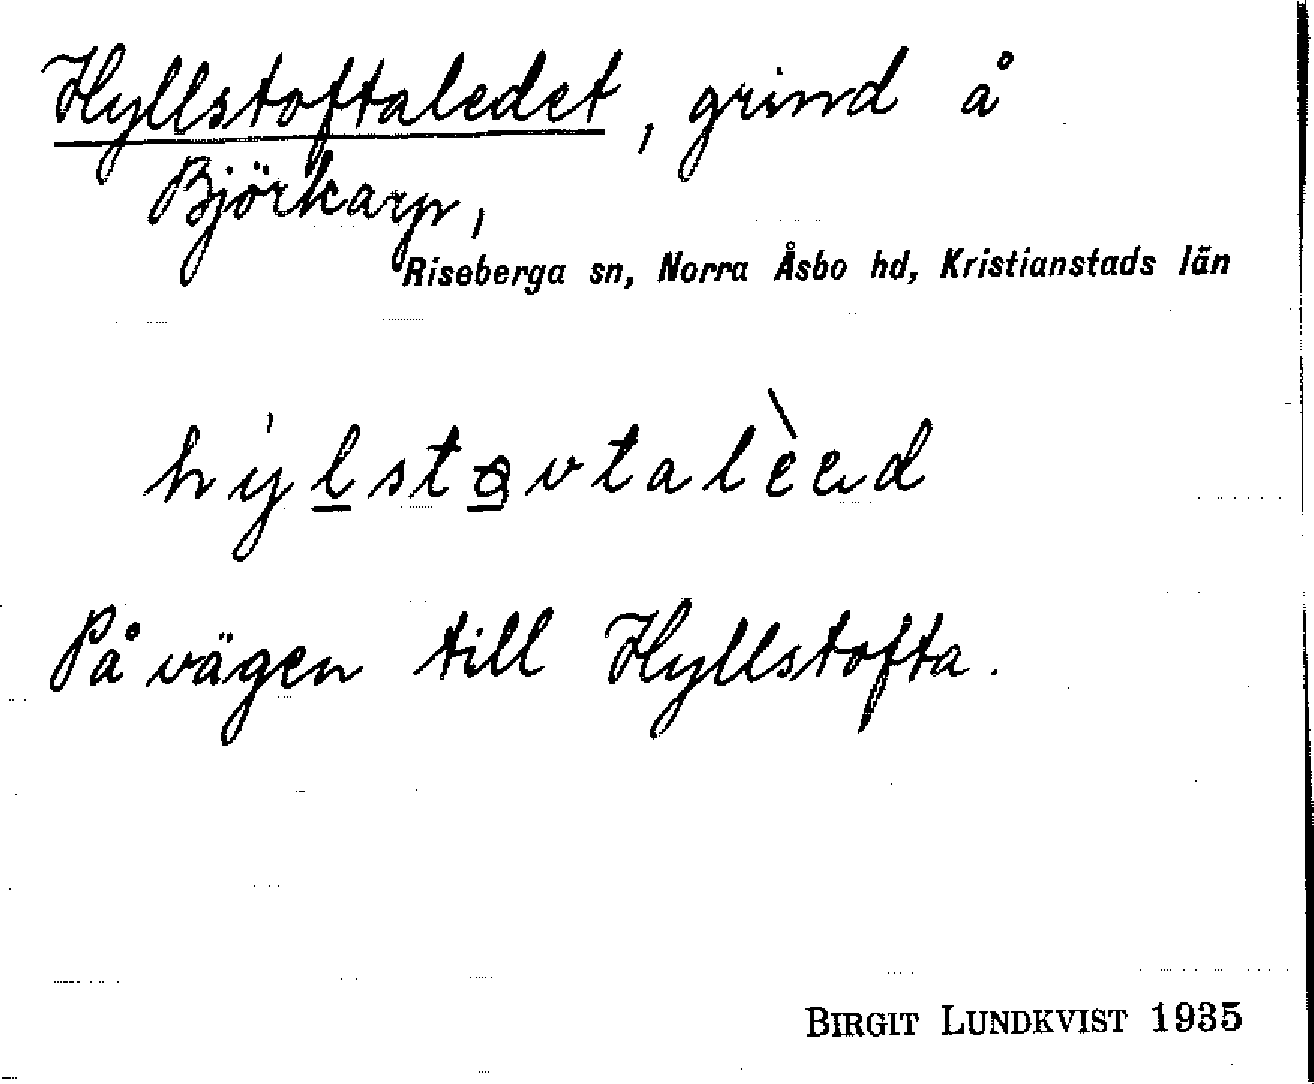 Hyllstoftaledet, grind å
Björkarp,
Riseberga sn, Norra Åsbo hd, Kristianstads län
På vägen till Hyllstofta.
BIRGIT LUNDKVIST 1935